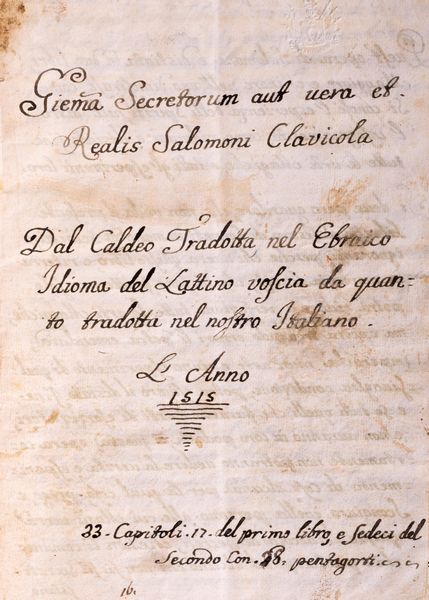 Giema Secretorum aut vera et.
Realis Salomoni Clavicola
Dal Caldeo Tradotta, nel Ebraico
Idioma del Lattino voscia da quan=
to tradotta nel nostro Italiano.
L' Anno
1515
33. Capitoli. 17. del primo libro, e sedeci del
Secondo Con. 58. pentagorri.
16.